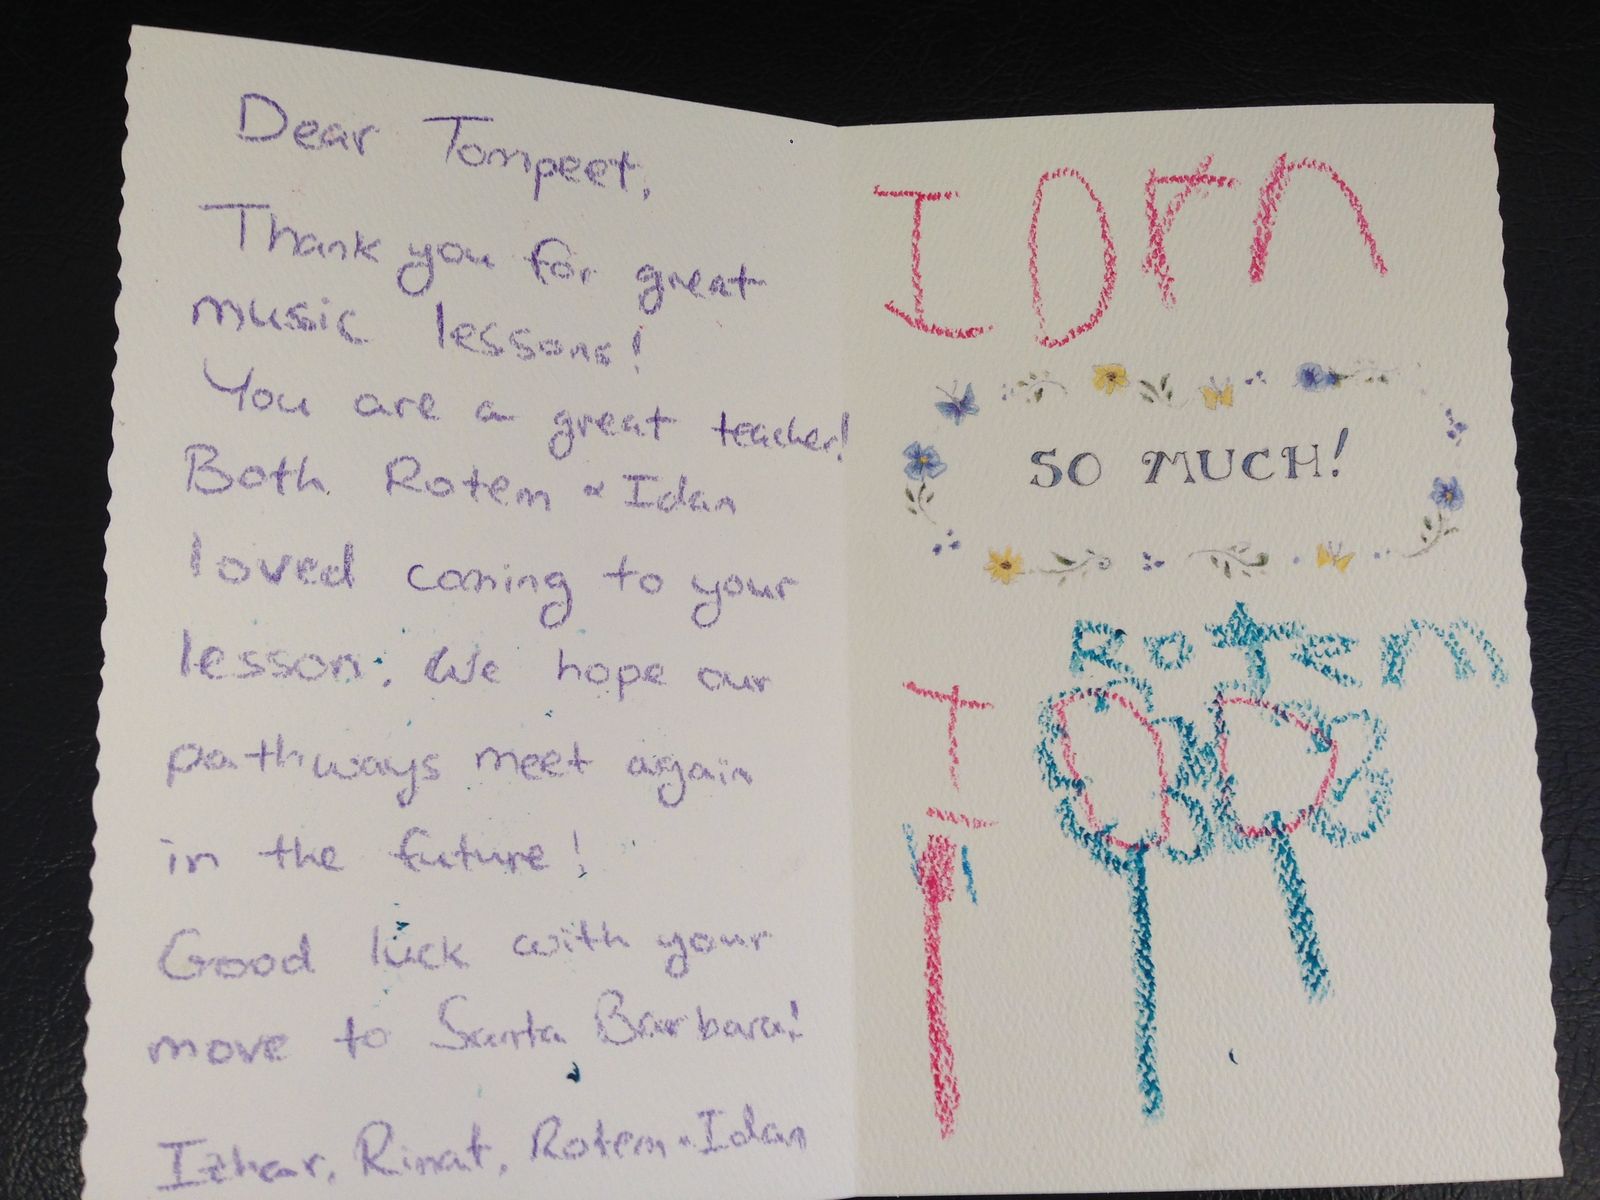 Dear Tompeet,
Thank you for great
music lessons!
You are a great teacher!
Both Rotem & Idan
loved coming to your
lesson. We hope our
pathways meet again
in the future!
Good luck with your
move to Santa Barbara!
Izhar, Rinat, Rotem & Idan
SO MUCH!
ROTEM